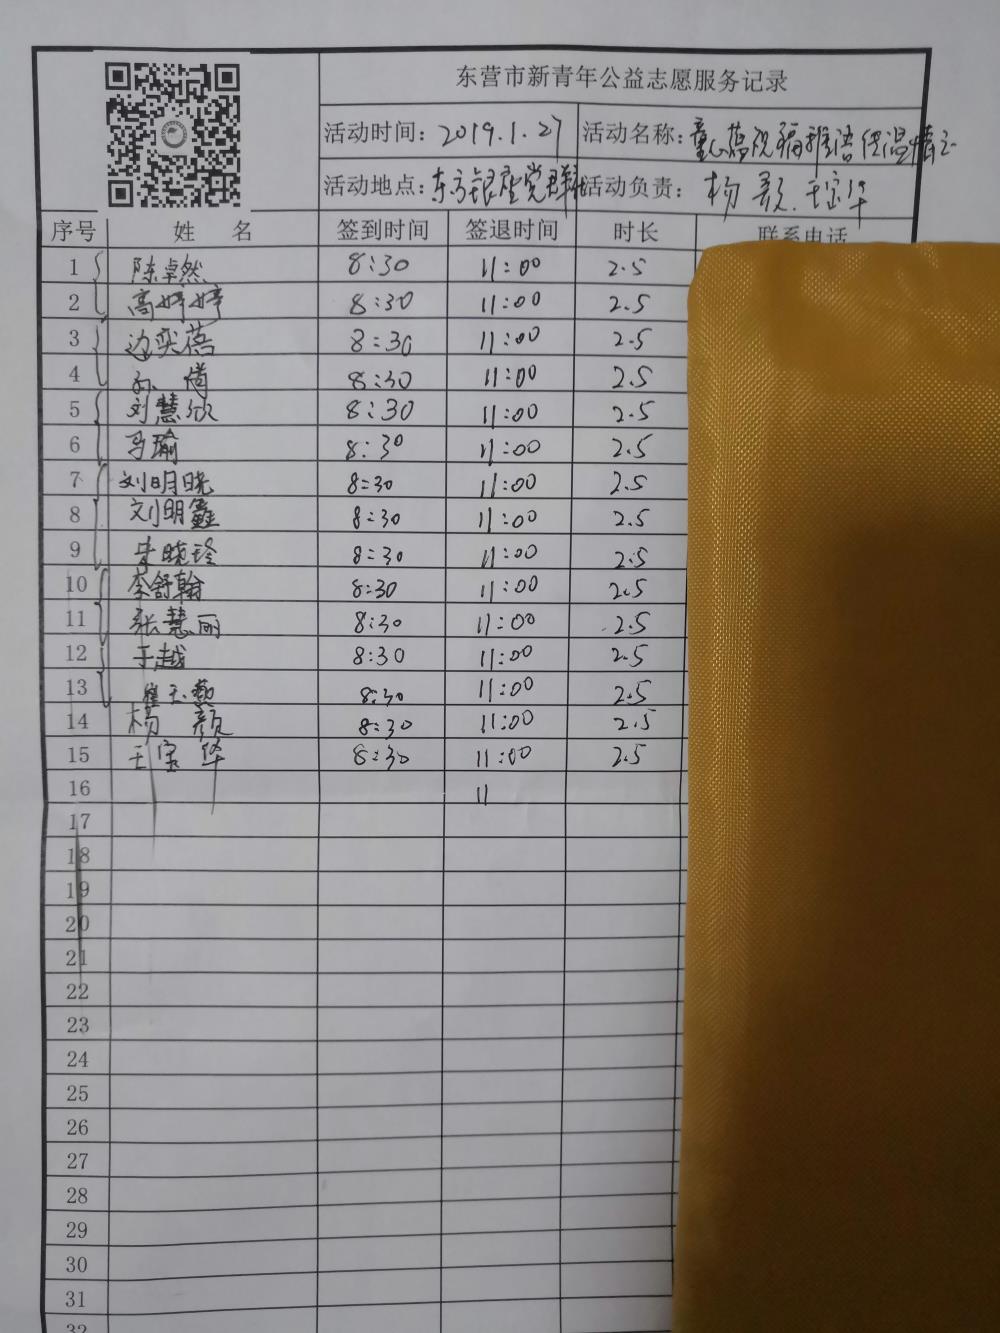 东营市新青年公益志愿服务记录
活动时间：2019.1.27 活动名称：童心
活动地点：东方银座党群 活动负责：杨颜.王宝华
序号 姓 名 签到时间 签退时间 时长 联系电话
1 陈卓然 8:30 11:00 2.5
2 高婷婷 8:30 11:00 2.5
3 边奕蓓 8:30 11:00 2.5
4 孙 8:30 11:00 2.5
5 刘慧欣 8:30 11:00 2.5
6 马瑜 8:30 11:00 2.5
7 刘明晓 8:30 11:00 2.5
8 刘明鑫 8:30 11:00 2.5
9 晓玲 8:30 11:00 2.5
10 李舒翰 8:30 11:00 2.5
11 张慧丽 8:30 11:00 2.5
12 于越 8:30 11:00 2.5
13 崔玉 8:30 11:00 2.5
14 杨 颜 8:30 11:00 2.5
15 王宝华 8:30 11:00 2.5
16 11
17
18
19
20
21
22
23
24
25
26
27
28
29
30
31
32